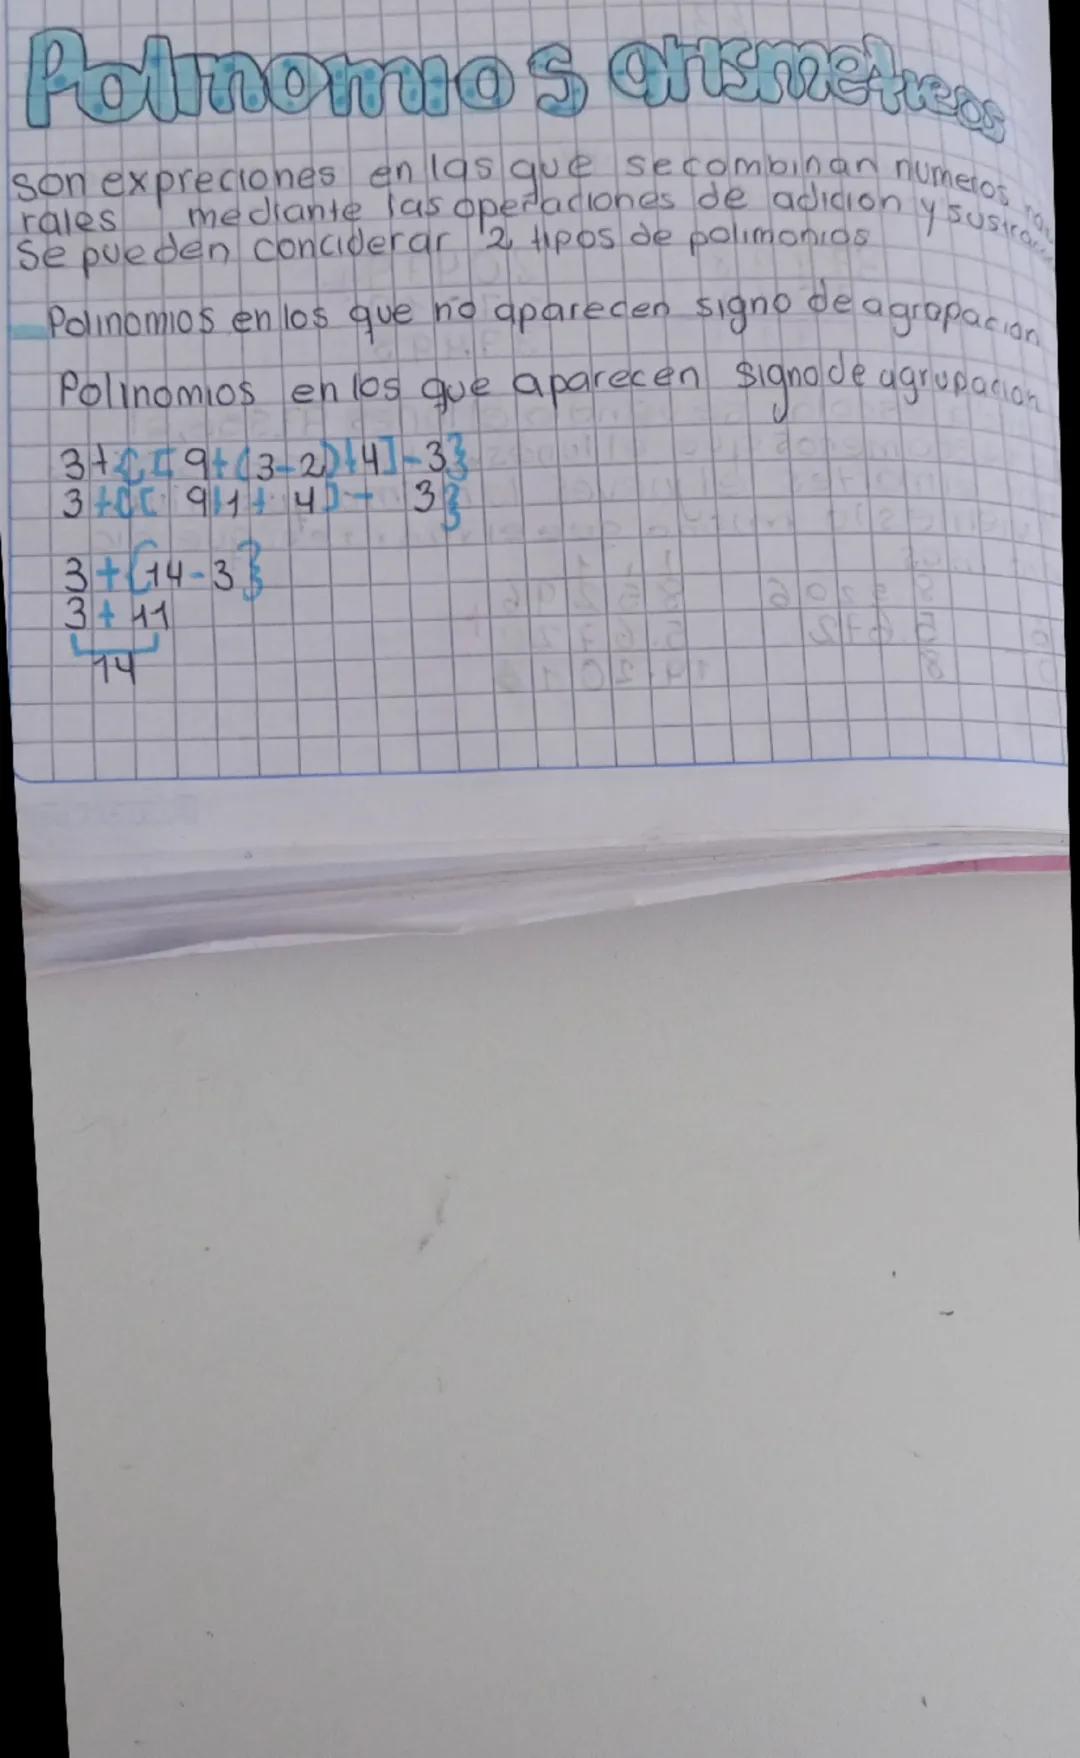 Polinomios arismeticos
son expreciones en las que se combinan numeros
rales mediante las operaciones de adicion y sustra
Se pueden conciderar 2 tipos de polimonios
Polinomios en los que no aparecen signo de agrapacion
Polinomios en los que aparecen signo de agrupacion
3+{[9+(3-2)+4]-3}
3+{[9+1+4]-3}
3+{14-3}
3+11
14